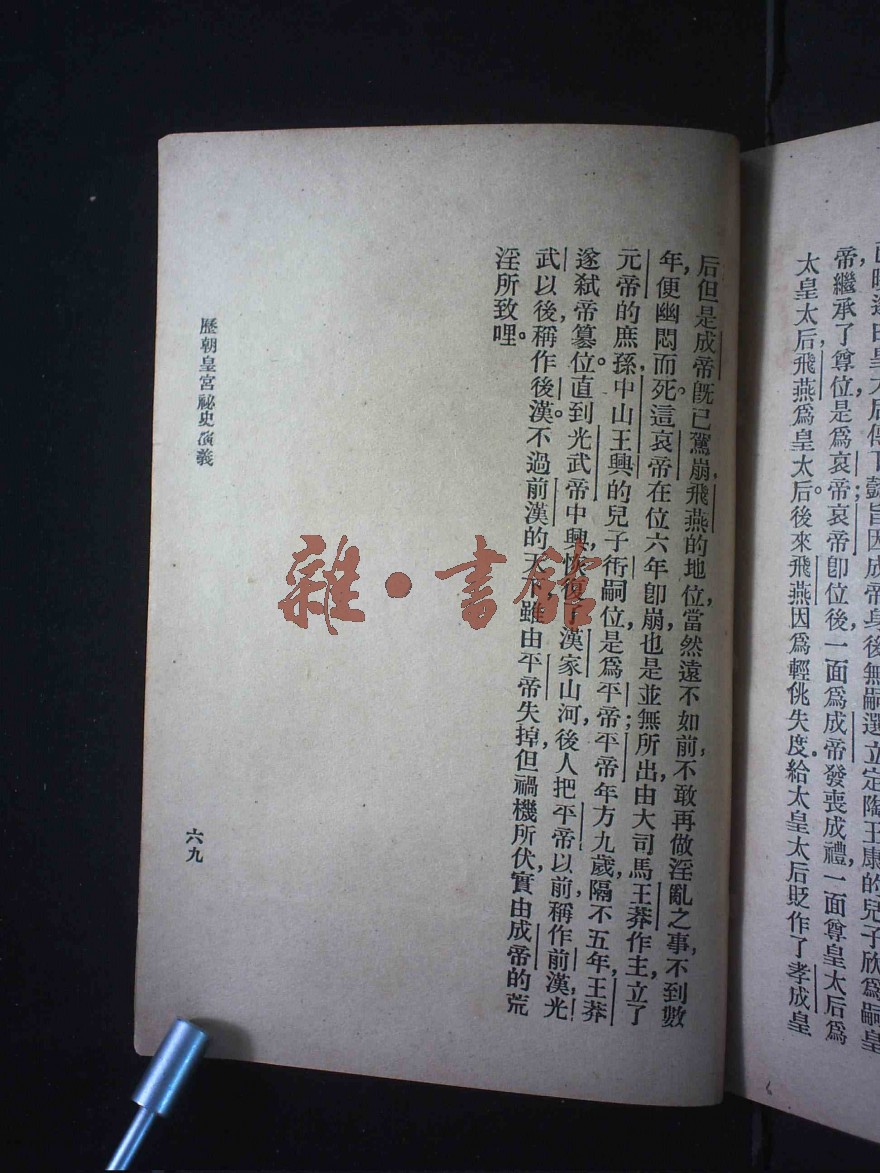 帝繼承了尊位，是爲哀帝；哀帝卽位後，一面爲成帝發喪成禮，一面尊皇太后爲
太皇太后，飛燕爲皇太后。後來飛燕因爲輕佻失度，給太皇太后貶作了孝成皇
后，但是成帝旣已駕崩，飛燕的地位，當然遠不如前，不敢再做淫亂之事，不到數
年，便幽悶而死。這哀帝在位六年卽崩，也是並無所出，由大司馬王莽作主，立了
元帝的庶孫，中山王興的兒子衎嗣位，是爲平帝；平帝年方九歲，隔不五年，王莽
遂弒帝篡位。直到光武帝中興，恢復了漢家山河，後人把平帝以前，稱作前漢，光
武以後，稱作後漢。不過前漢的天，雖由平帝失掉，但禍機所伏，實由成帝的荒
淫所致哩。
歷朝皇宮祕史演義
六九
雜·書館